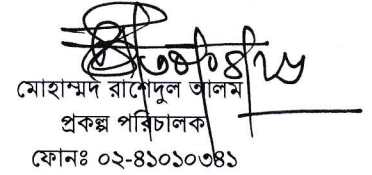 মোহাম্মদ রাশেদুল আলম
প্রকল্প পরিচালক
ফোনঃ ০২-৪১০১০৩৪১